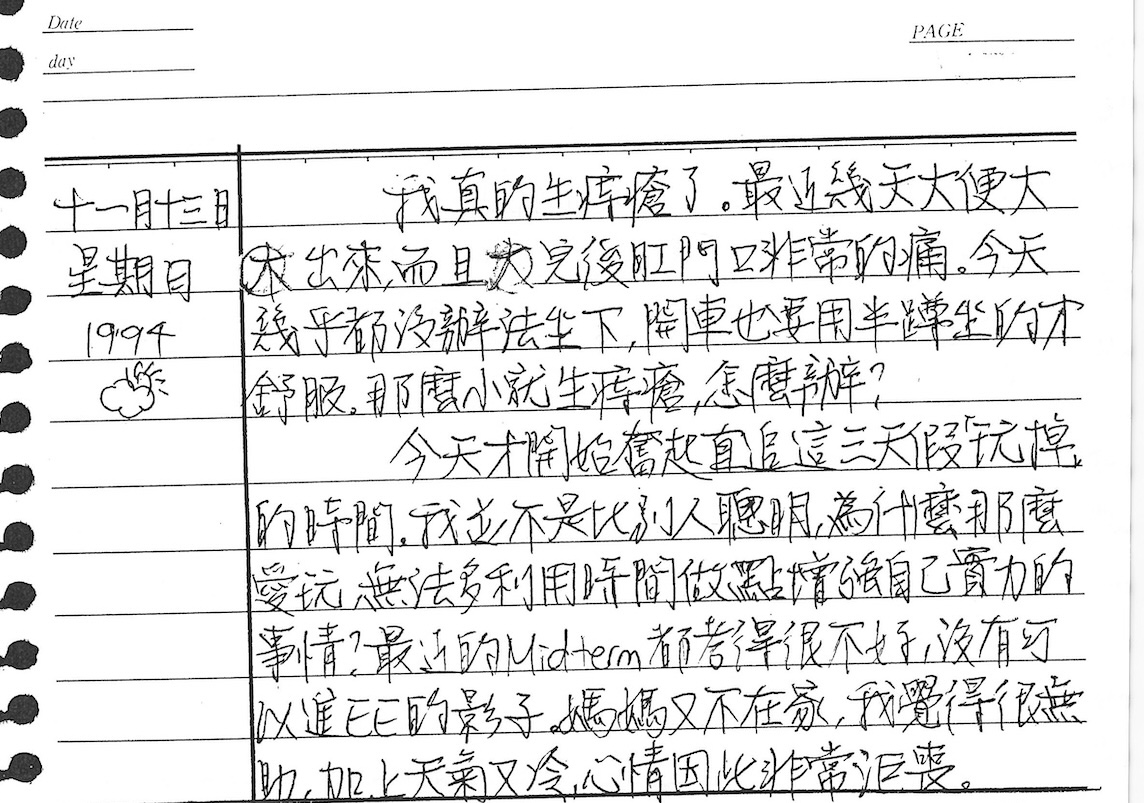 Date
PAGE
day
十一月十三日
星期日
1994
我真的生痔瘡了。最近幾天大便大
不出來,而且大完後肛門口非常的痛。今天
幾乎都沒辦法坐下,開車也要用半蹲坐的才
舒服。那麼小就生痔瘡,怎麼辦?
今天才開始奮起直追這三天假玩掉
的時間。我並不是比別人聰明,為什麼那麼
愛玩,無法多利用時間做點增強自己實力的
事情?最近的Midterm都考得很不好,沒有可
以進EE的影子。媽媽又不在家,我覺得很無
助,加上天氣又冷,心情因此非常沮喪。